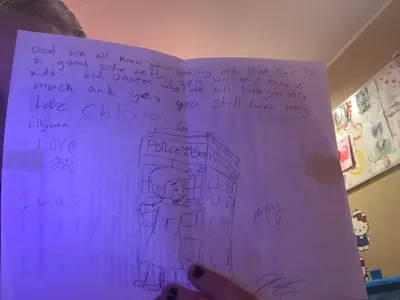 Dad we all know your geting old But their is
a good side to this you will still have us
kids... and Doctor who we all love you very
much and yes you still have may
Love Chloxo
Lillyann
Love
Police Box
may